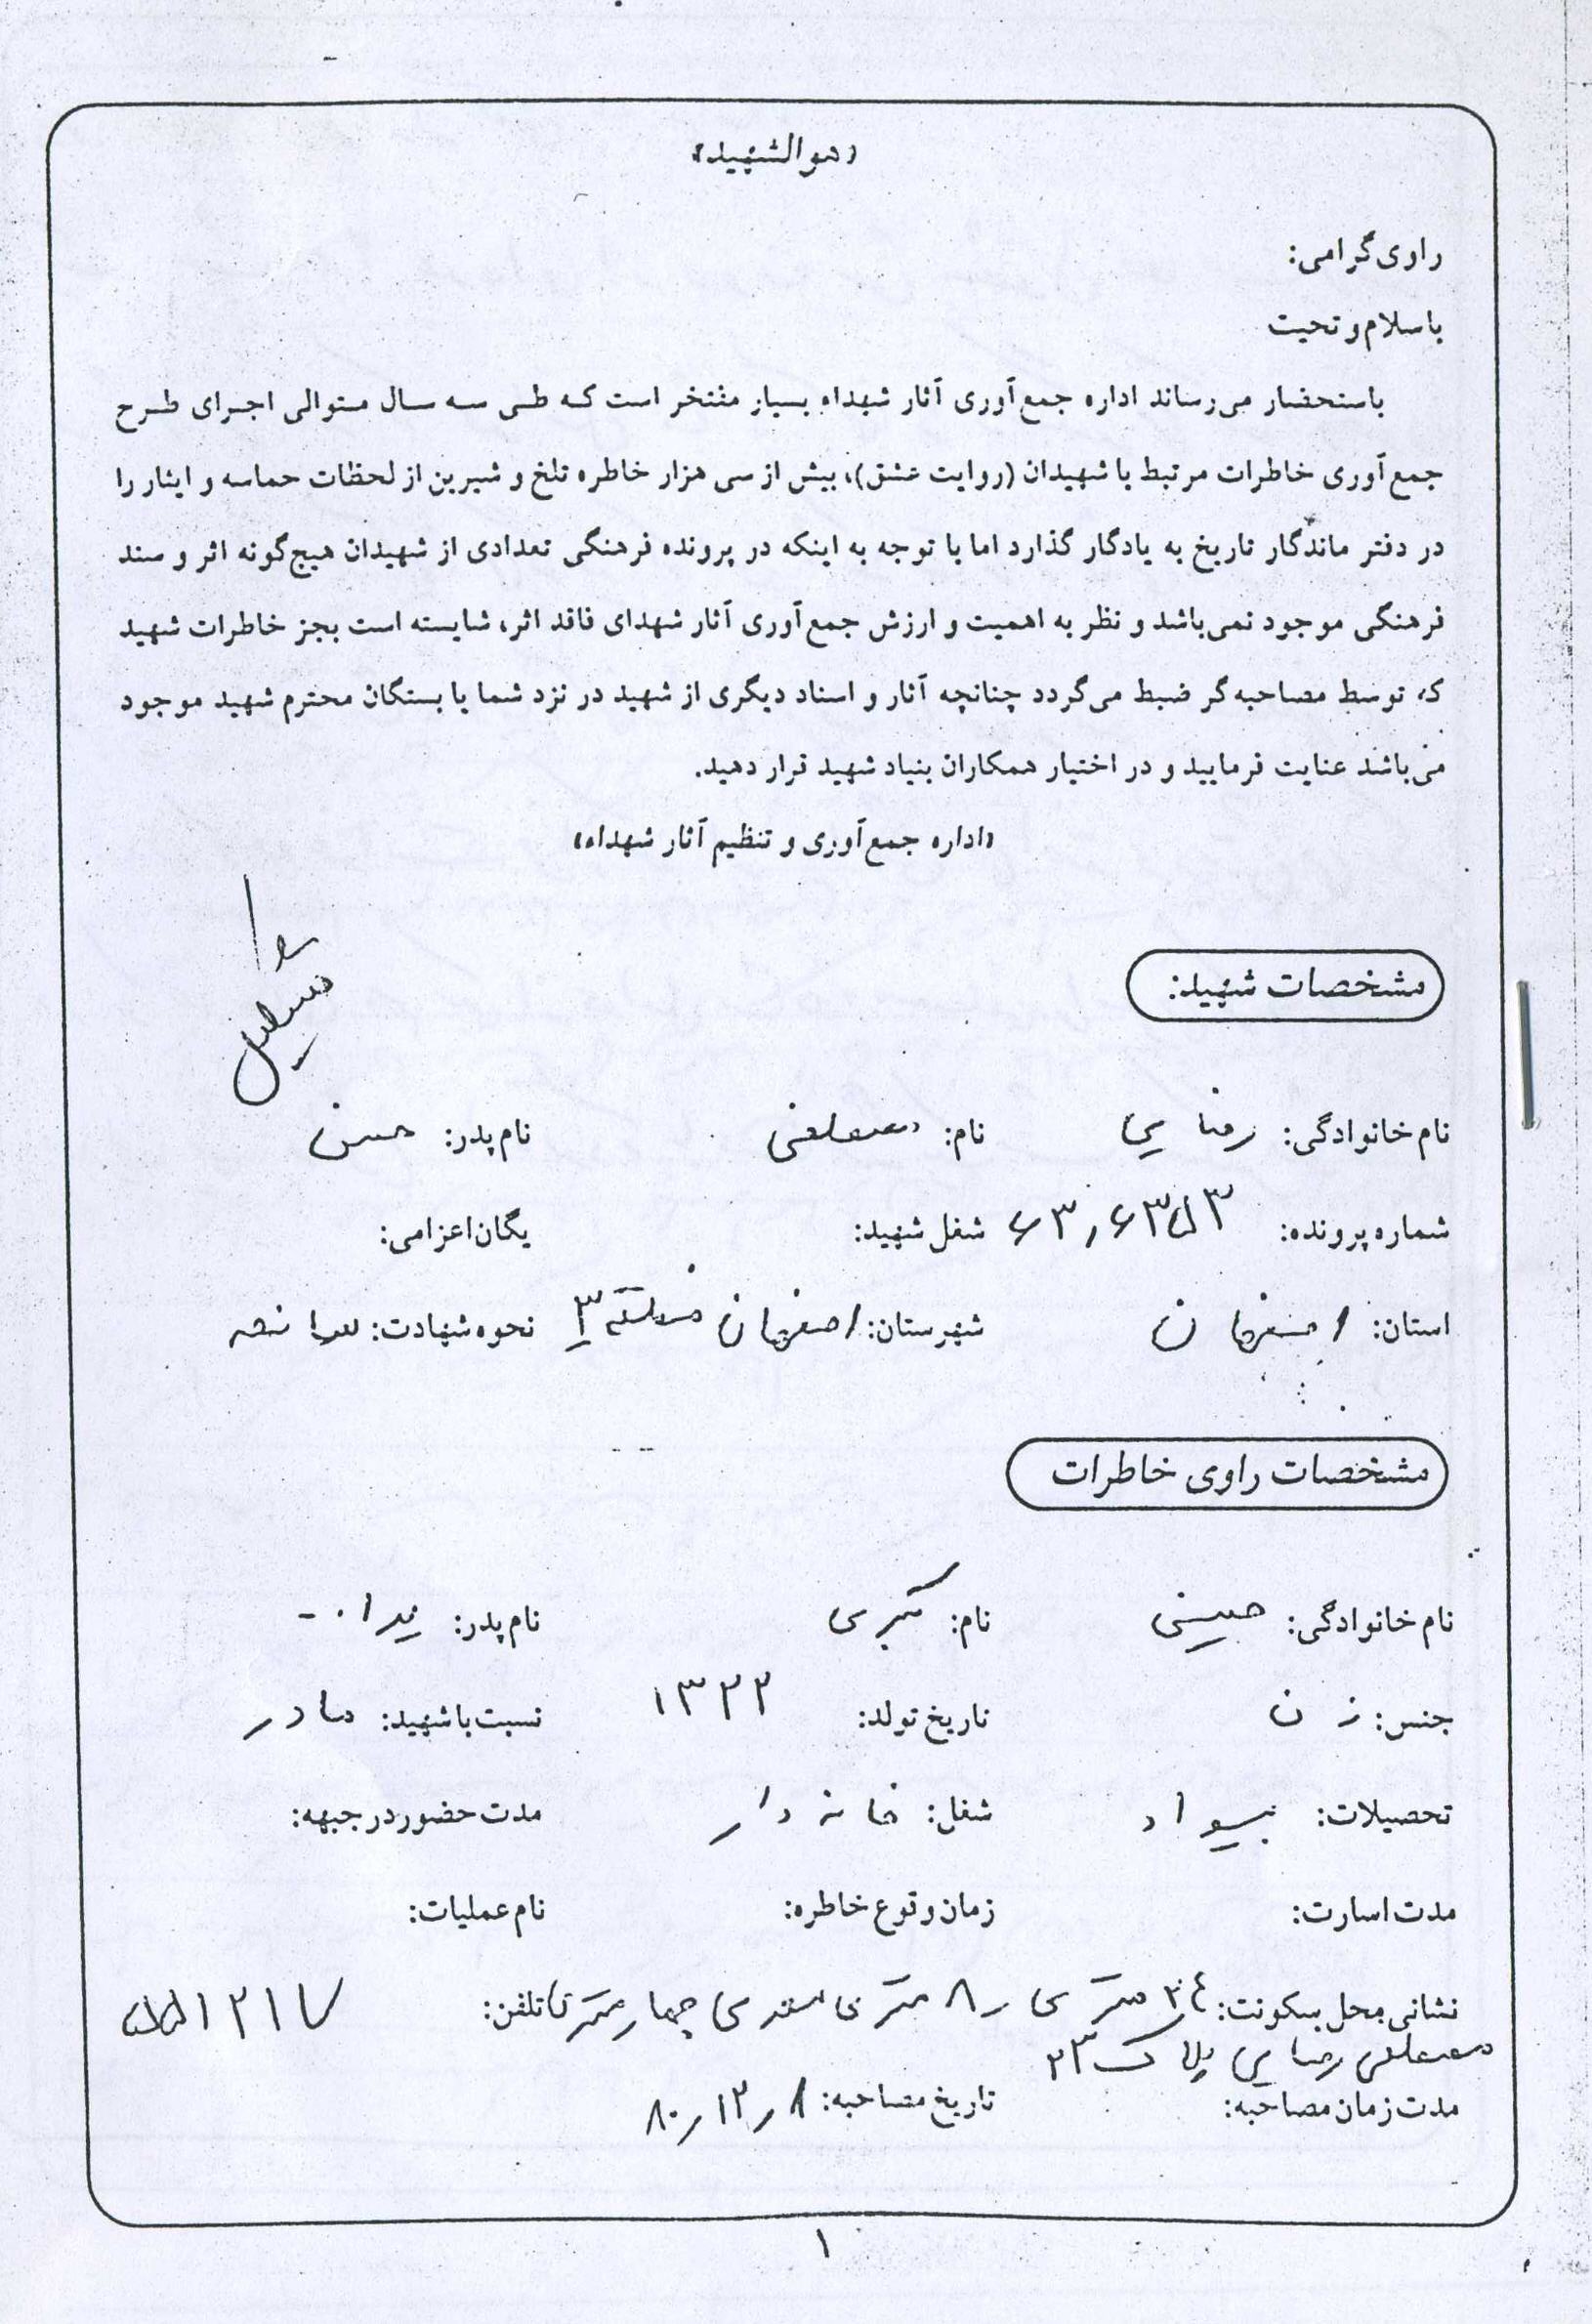 «هوالشهید»
راوی گرامی:
باسلام و تحیت
باستحضار می‌رساند اداره جمع‌آوری آثار شهداء بسیار مفتخر است که طی سه سال متوالی اجرای طرح
جمع‌آوری خاطرات مرتبط با شهیدان (روایت عشق)، بیش از سی هزار خاطره تلخ و شیرین از لحظات حماسه و ایثار را
در دفتر ماندگار تاریخ به یادگار گذارد اما با توجه به اینکه در پرونده فرهنگی تعدادی از شهیدان هیچ‌گونه اثر و سند
فرهنگی موجود نمی‌باشد و نظر به اهمیت و ارزش جمع‌آوری آثار شهدای فاقد اثر، شایسته است بجز خاطرات شهید
که توسط مصاحبه‌گر ضبط می‌گردد چنانچه آثار و اسناد دیگری از شهید در نزد شما یا بستگان محترم شهید موجود
می‌باشد عنایت فرمایید و در اختیار همکاران بنیاد شهید قرار دهید.
«اداره جمع‌آوری و تنظیم آثار شهداء»
مشخصات شهید:
نام خانوادگی: رضایی نام: مصطفی نام پدر: حسن
شماره پرونده: ۶۳٫۶۳۵۳ شغل شهید: یگان اعزامی:
استان: اصفهان شهرستان: اصفهان منطقه ۳ نحوه شهادت:
مشخصات راوی خاطرات
نام خانوادگی: حسینی نام: کبری نام پدر: یدا...
جنس: زن تاریخ تولد: ۱۳۲۲ نسبت با شهید: مادر
تحصیلات: بیسواد شغل: خانه دار مدت حضور در جبهه:
مدت اسارت: زمان وقوع خاطره: نام عملیات:
نشانی محل سکونت: ۲۴ متری ۸ متری چهار متری تلفن: ۵۵۱۲۱۷
مصطفی رضایی پلاک ۲۳
مدت زمان مصاحبه: تاریخ مصاحبه: ۸۰٫۱۲٫۸
۱